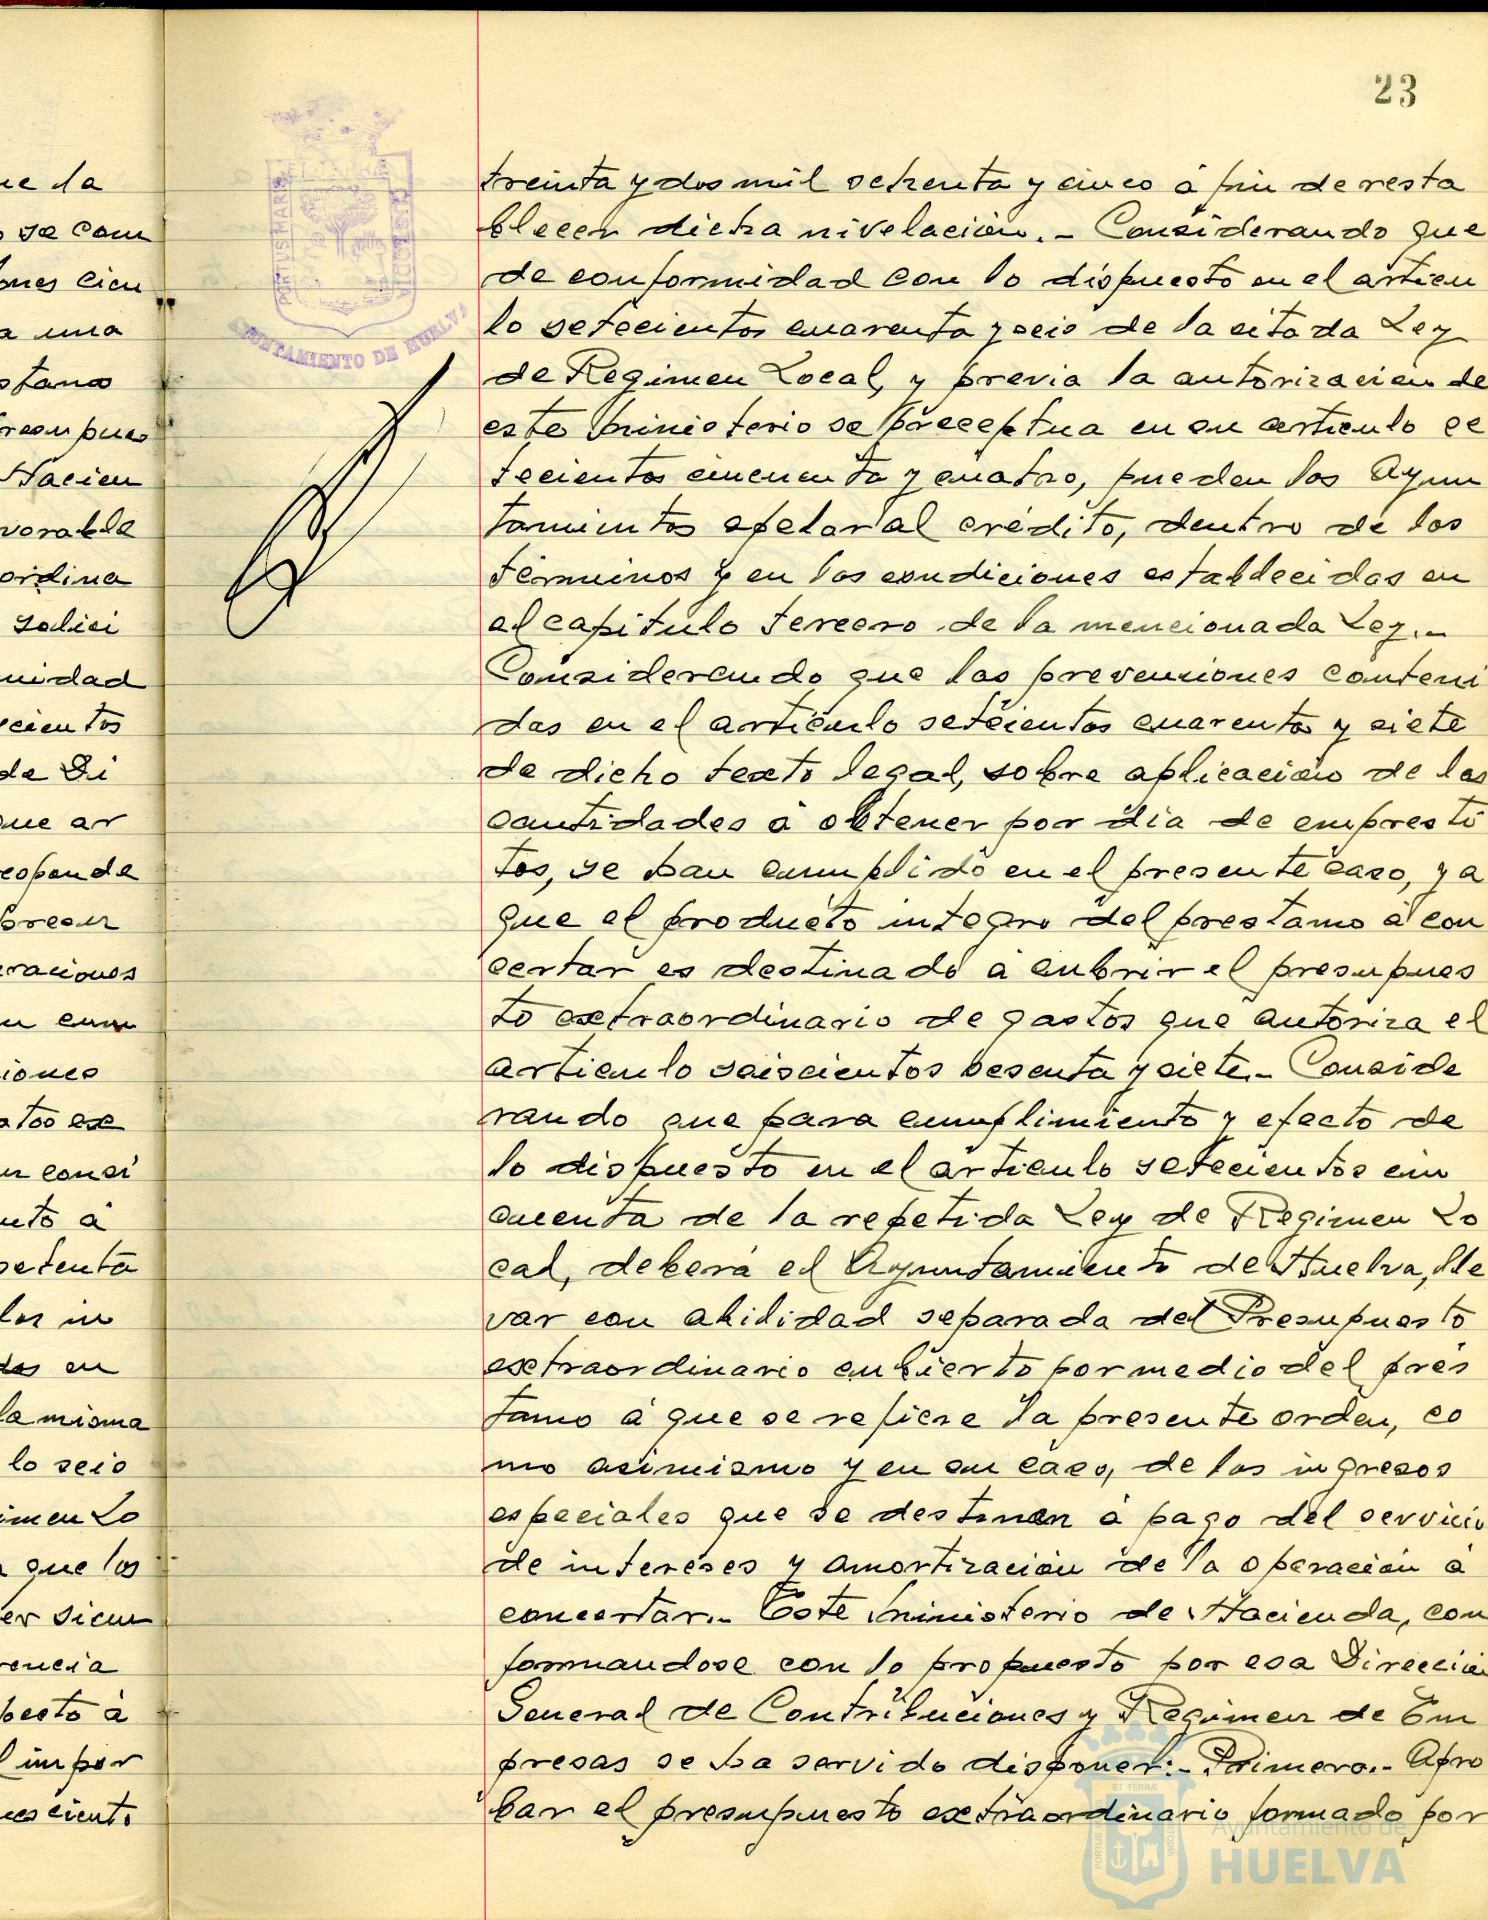 23
PORTUS MARIS
AYUNTAMIENTO DE HUELVA
ue la
o se com
ones cien
a una
stamo
resupues
Hacien
vorable
ordina
solici
nidad
cientos
de Di
que ar
responde
oreser
eraciones
en cum
iones
atos ex
en consi
uto á
setenta
los in
dos en
la misma
lo seis
imen Lo
a que los
er sien
rencia
pecto á
l impor
nescientos
treinta y dos mil setenta y cinco á fin de resta
blecer dicha nivelación.- Considerando que
de conformidad con lo dispuesto en el articu
lo setecientos cuarenta y seis de la citada Ley
de Regimen Local, y previa la autorización de
este ministerio se preceptua en su articulo se
tecientos cincuenta y cuatro, pueden los Ayun
tamientos apelar al crédito, dentro de los
términos y en las condiciones establecidas en
el capitulo tercero de la mencionada Ley.-
Considerando que las prevenciones conteni
das en el articulo setecientos cuarenta y siete
de dicho texto legal, sobre aplicación de las
cantidades á obtener por dia de empresti
tos, se han cumplido en el presente caso, ya
que el producto integro del prestamo á con
certar es destinado á cubrir el presupues
to extraordinario de gastos que autoriza el
articulo seiscientos sesenta y siete.- Conside
rando que para cumplimiento y efecto de
lo dispuesto en el articulo setecientos cin
cuenta de la repetida Ley de Regimen Lo
cal, deberá el Ayuntamiento de Huelva, lle
var con abilidad separada del Presupuesto
extraordinario cubierto por medio del prés
tamo á que se refiere la presente orden, co
mo asimismo y en su caso, de los ingresos
especiales que se destinen á pago del servicio
de intereses y amortización de la operación á
concertar.- Este ministerio de Hacienda, con
formandose con lo propuesto por esa Dirección
General de Contribuciones y Regimen de Em
presas se ha servido disponer:- Primero.- Apro
bar el presupuesto extraordinario formado por
Ayuntamiento de
HUELVA